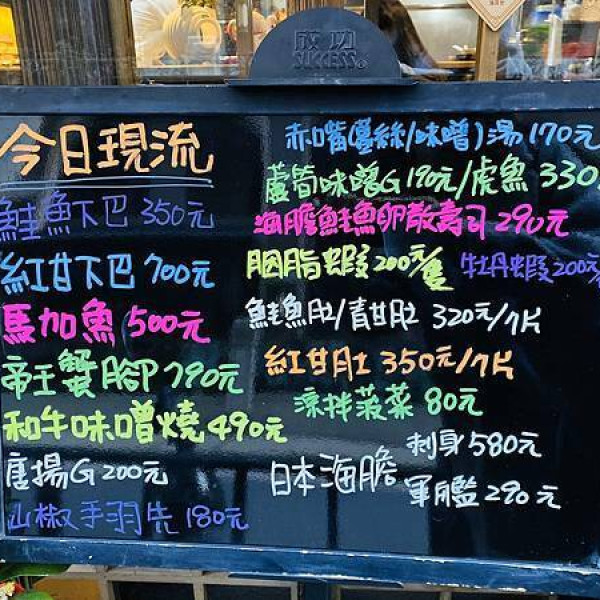 成功
SUCCESS®
今日現流
鮭魚下巴 350元
紅甘下巴 700元
馬加魚 500元
帝王蟹腳 790元
和牛味噌燒 490元
唐揚G 200元
山椒手羽先 180元
赤嘴(薑絲/味噌)湯 170元
蘆筍味噌G 190元/虎魚 330
海膽鮭魚卵散壽司 290元
胭脂蝦 200元/隻 牡丹蝦 200元/
鮭魚肚/青甘肚 320元/7片
紅甘肚 350元/7片
涼拌菠菜 80元
日本海膽
刺身 580元
軍艦 290元